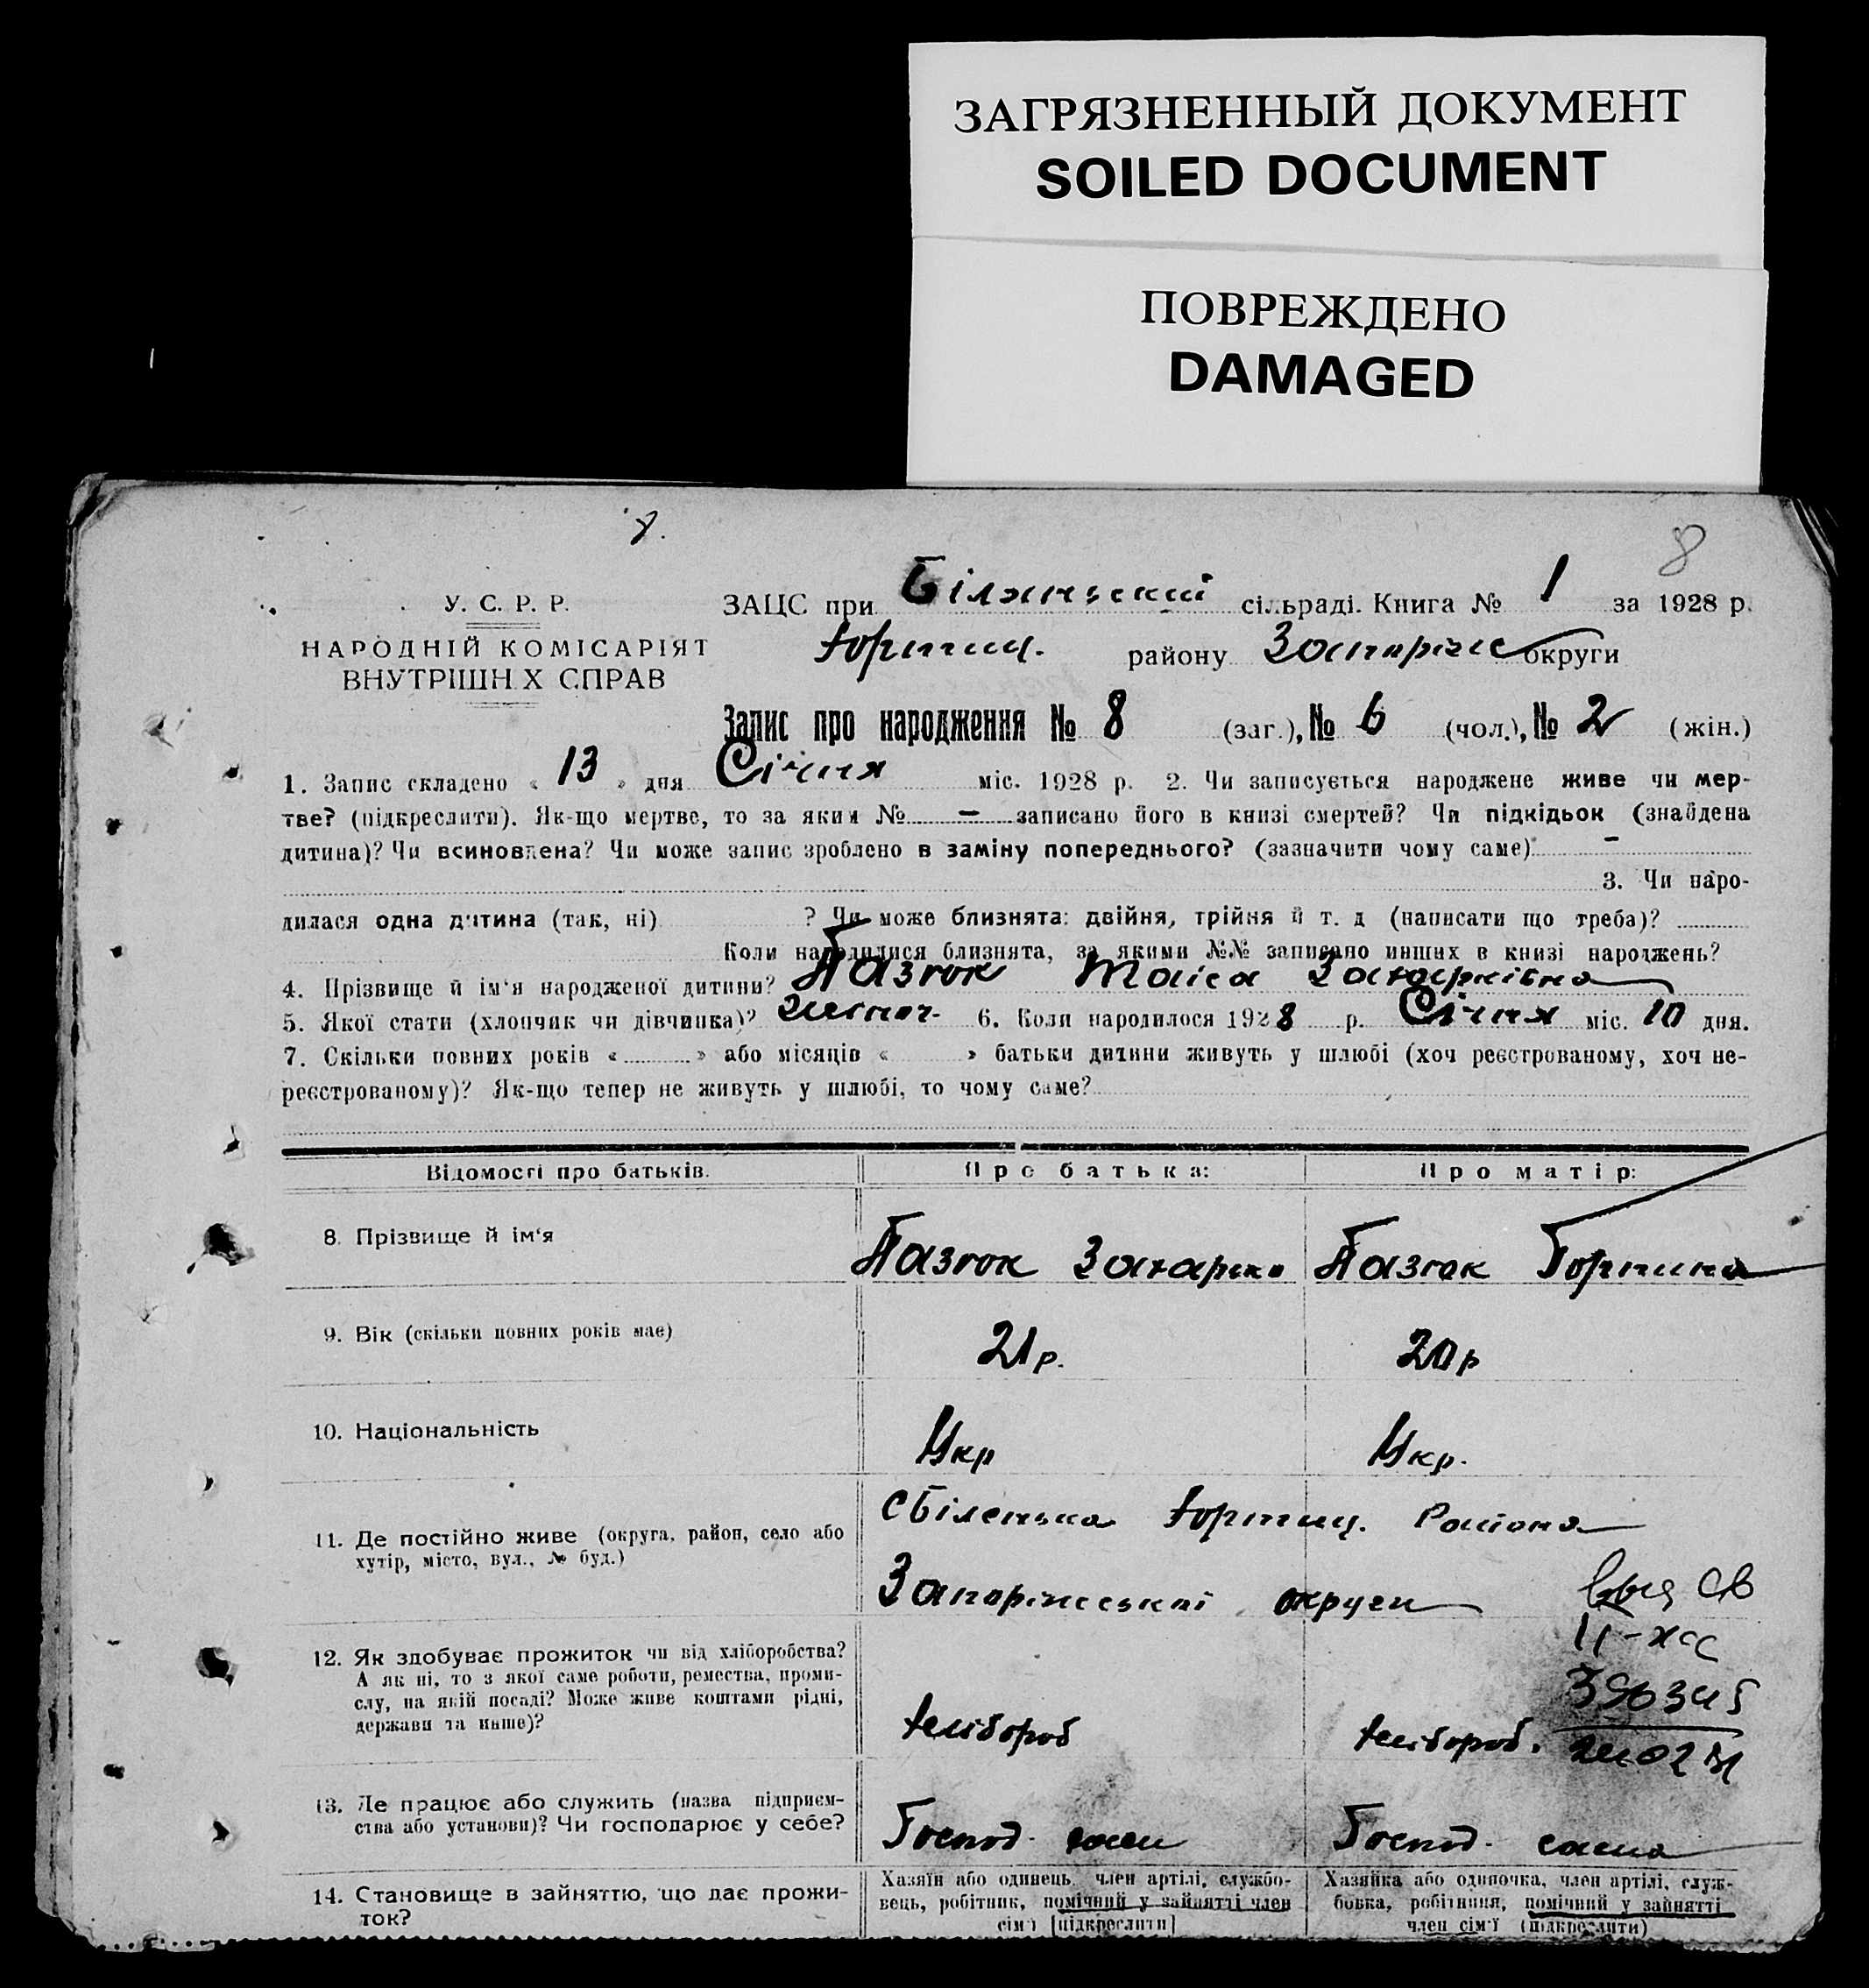 ЗАГРЯЗНЕННЫЙ ДОКУМЕНТ
SOILED DOCUMENT
ПОВРЕЖДЕНО
DAMAGED
8.
8
У. С. Р. Р.
НАРОДНІЙ КОМІСАРІЯТ
ВНУТРІШН Х СПРАВ
ЗАЦС при Білянський сільраді. Книга № 1 за 1928 р.
Хортиц. району Запоріж округи
Запис про народження № 8 (заг.), № 6 (чол.), № 2 (жін.)
1. Запис складено « 13 » дня Січня міс. 1928 р. 2. Чи записується народжене живе чи мер-
тве? (підкреслити). Як-що мертве, то за яким № — записано його в книзі смертей? Чи підкідьок (знайдена
дитина)? Чи всиновлена? Чи може запис зроблено в заміну попереднього? (зазначити чому саме) —
3. Чи наро-
дилася одна дитина (так, ні) ? Чи може близнята: двійня, трійня й т. д (написати що треба)?
Коли народилися близнята, за якими №№ записано инших в книзі народжень?
4. Прізвище й ім'я народженої дитини? Пазюк Таіса Захарківна
5. Якої стати (хлопчик чи дівчинка)? 6. Коли народилося 1928 р. Січня міс. 10 дня.
7. Скільки повних років « » або місяців « » батьки дитини живуть у шлюбі (хоч реєстрованому, хоч не-
реєстрованому)? Як-що тепер не живуть у шлюбі, то чому саме?
Відомості про батьків. Про батька: Про матір:
8. Прізвище й ім'я Пазюк Захарко Пазюк Горпина
9. Вік (скільки повних років має) 21р. 20р
10. Національність Укр Укр.
11. Де постійно живе (округа, район, село або
хутір, місто, вул., № буд.)
с Біленька Хортиц. Района
Запоріжськоі округи
12. Як здобуває прожиток чи від хліборобства?
А як ні, то з якої саме роботи, ремества, проми-
слу, на якій посаді? Може живе коштами рідні,
держави та инше)?
хлібороб хлібороб.
13. Де працює або служить (назва підприєм-
ства або установи)? Чи господарює у себе?
Господ. Господ. сама
14. Становище в зайняттю, що дає прожи-
ток?
Хазяїн або одинець, член артілі, службо-
вець, робітник, помічний у зайнятті член
сім'ї [підкреслити]
Хазяйка або одиночка, член артілі, служ-
бовка, робітниця, помічний у зайнятті
член сім'ї (підкреслити)